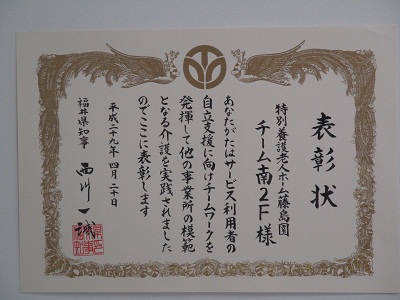 表彰状
特別養護老人ホーム藤島園
チーム南2F様
あなたがたはサービス利用者の
自立支援に向けチームワークを
発揮して他の事業所の模範
となる介護を実践されました
のでここに表彰します
平成二十九年四月二十日
福井県知事 西川一誠